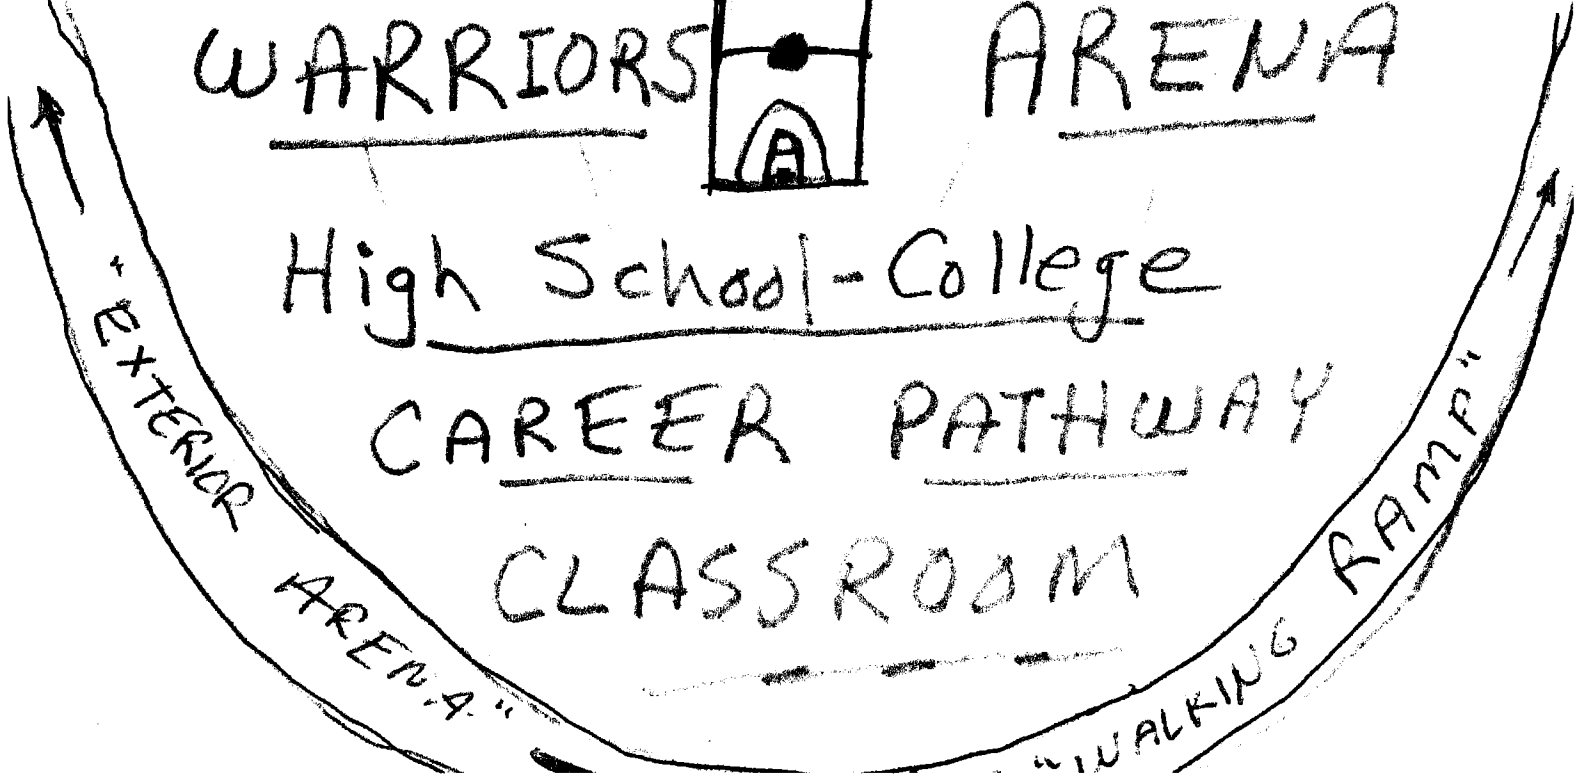 WARRIORS ARENA
High School-College
CAREER PATHWAY
CLASSROOM
"EXTERIOR ARENA"
"WALKING RAMP"